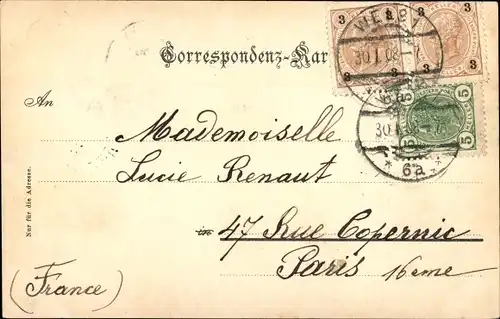 Correspondenz-Kar
3 3
3 3 3
5 5
5 5
30 I 02
30 I
6a
An
Mademoiselle
Lucie Renaut
in
47 Rue Copernic
Paris 16eme
(France)
Nur für die Adresse.